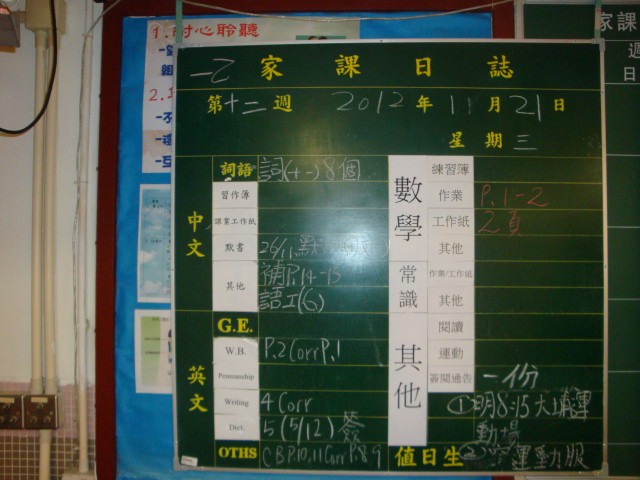 1. 耐心聆聽
2.
家課
週
日
一乙 家課日誌
第十二週 2012年11月21日
星期三
中文
詞語 詞(十一)8個
習作簿
課業工作紙
默書 26/11 默
其他 補P.14-15
語工(6)
英文
G.E.
W.B. P.2 Corr P.1
Penmanship
Writing 4 Corr
Dict. 5 (5/12) 簽
OTHS CB P.10,11 Corr P.8,9
數學
練習簿
作業 P.1-2
工作紙 2頁
其他
常識
作業/工作紙
其他
其他
閱讀
運動
審閱通告 一份
①明8:15大埔運
動場
② 運動服
值日生